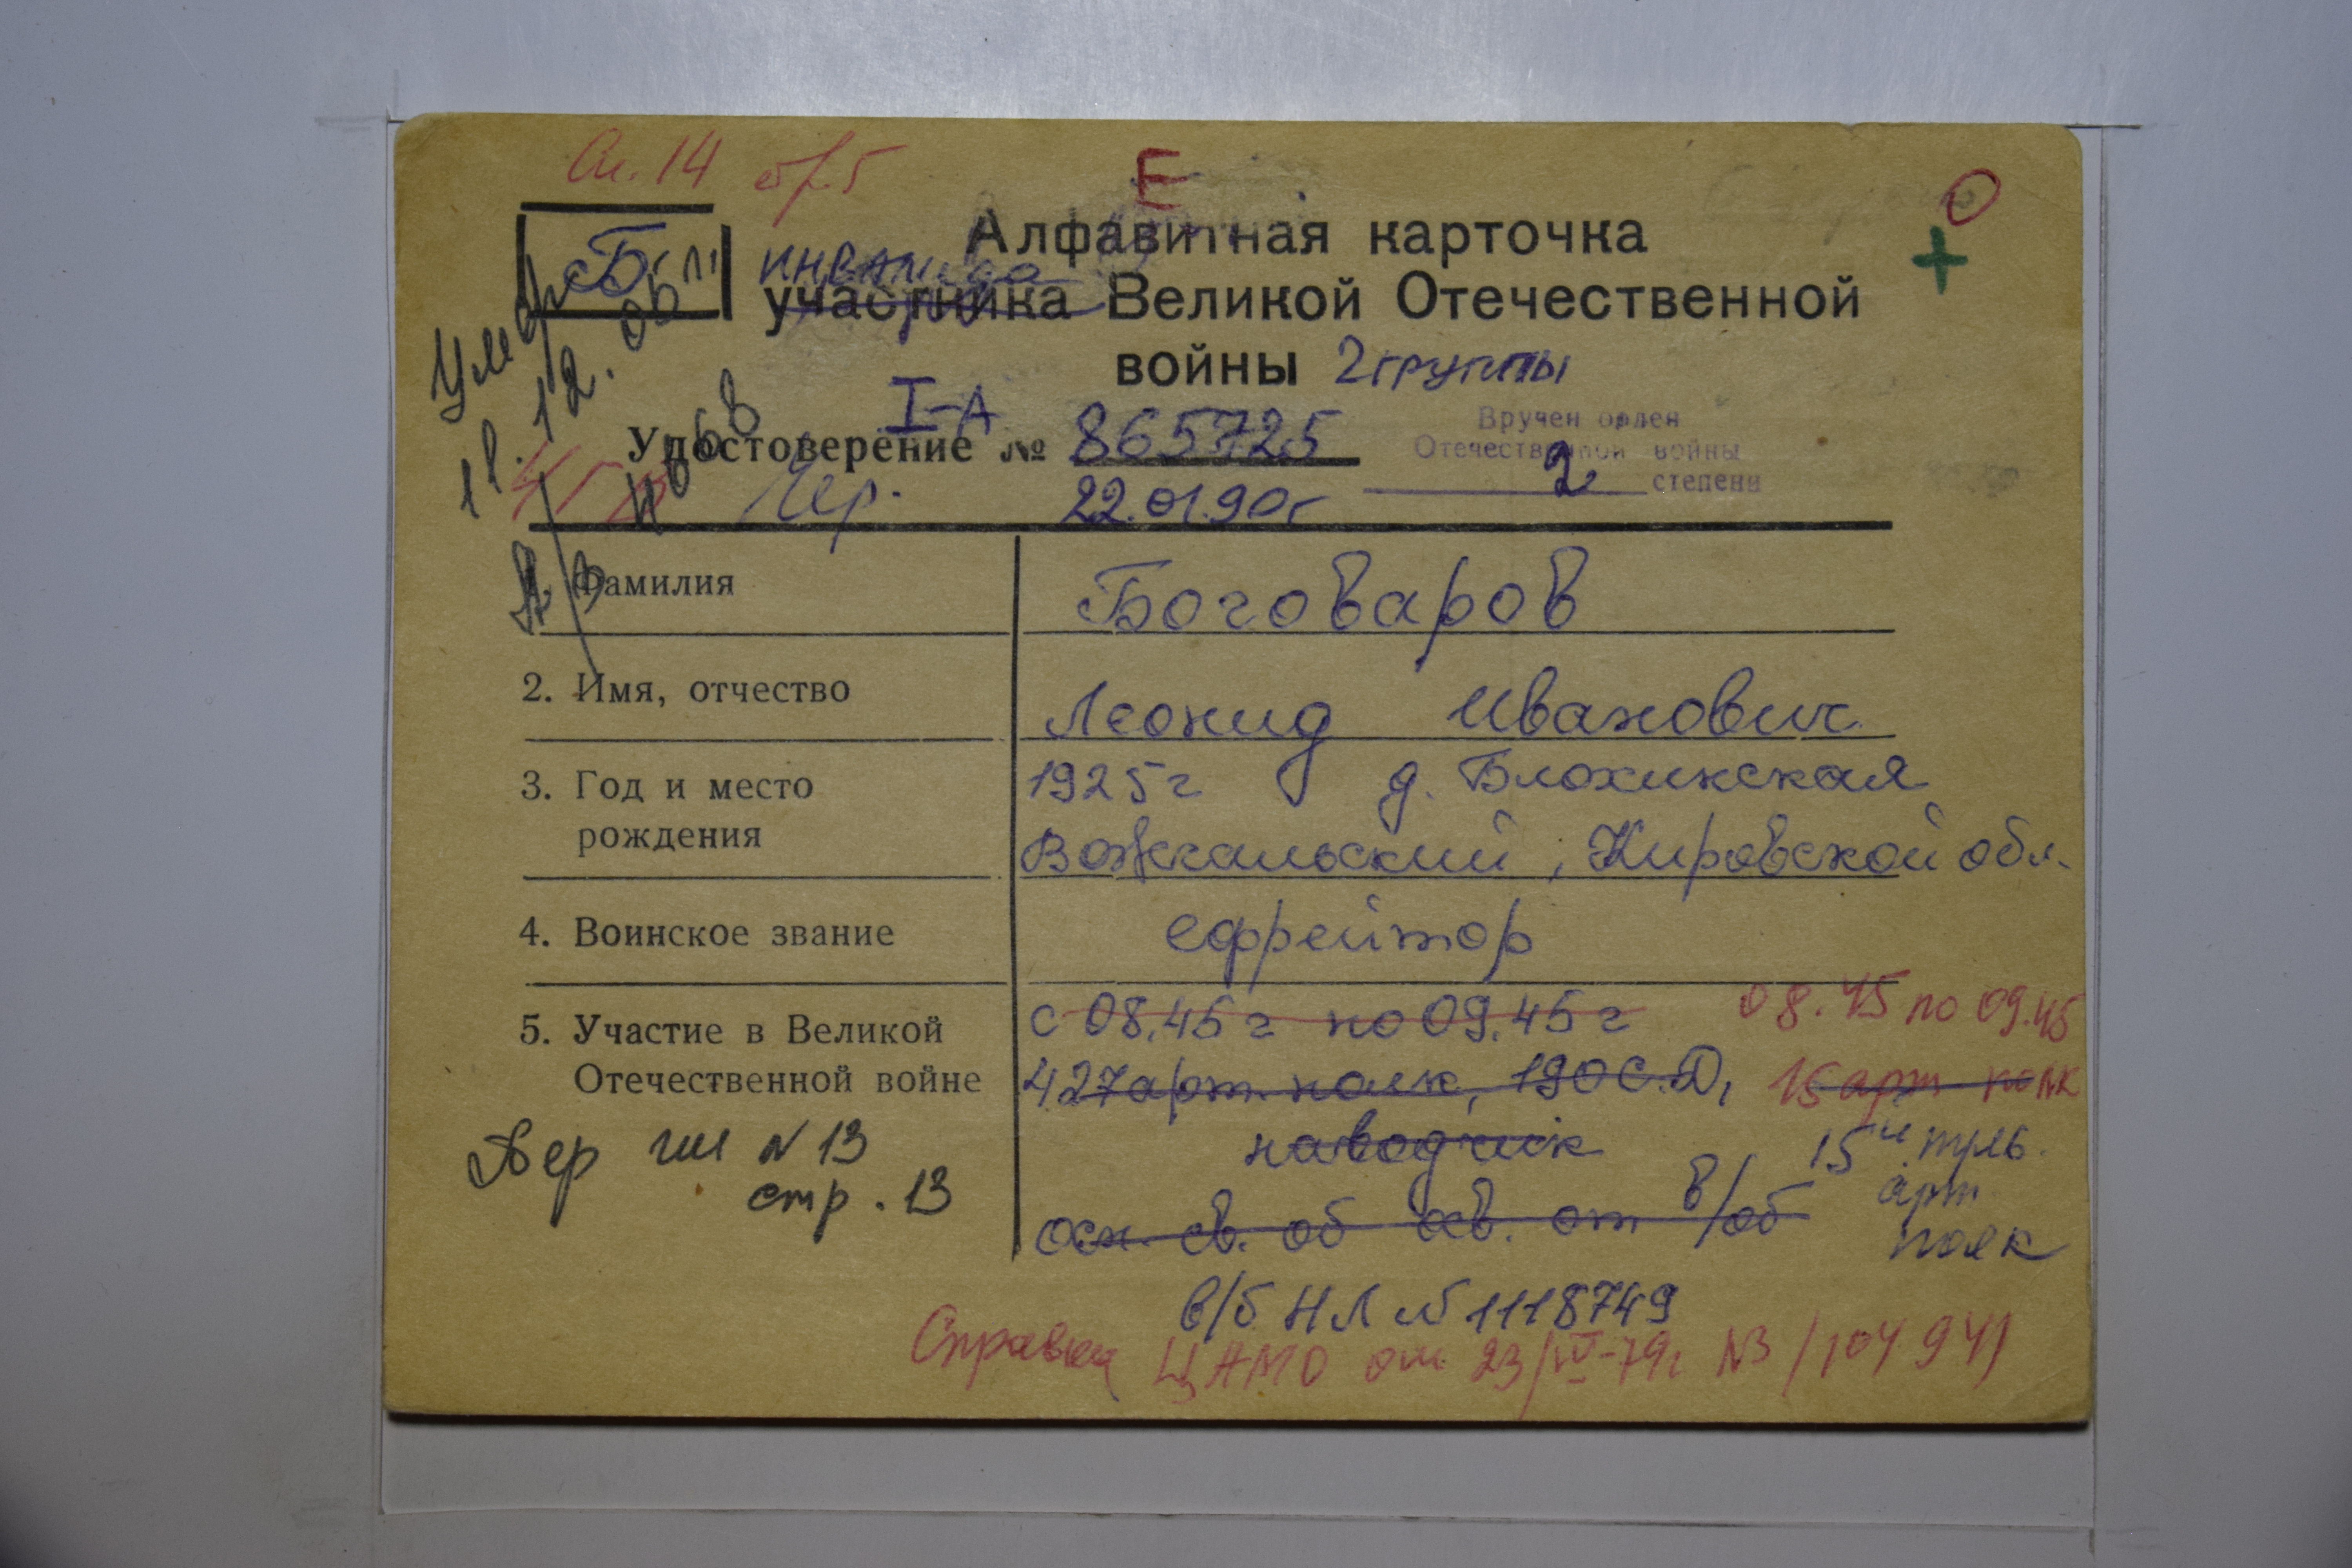 Сл. 14 стр. 5
Е
О
Б
+
Алфавитная карточка
инвалида
участника Великой Отечественной
войны 2 группы
Умер
18.12.06 г.
I-А
Удостоверение № 865725
22.01.90 г
Вручен орден
Отечественной войны
2 степени
Фамилия
Боговаров
2. Имя, отчество
Леонид Иванович
3. Год и место
рождения
1925 г д. Блохинская
Вожгальский, Кировской обл.
4. Воинское звание
ефрейтор
5. Участие в Великой
Отечественной войне
с 08.45 г по 09.45 г
08.45 по 09.45
427 арт. полк, 190 С.Д,
15 арт полк
наводчик
15й
арт
полк
осн. св. об осв. от в/об
№ 13
стр. 13
в/б НЛ № 1118749
Справка ЦАМО от 23/IV-79г №3/104941